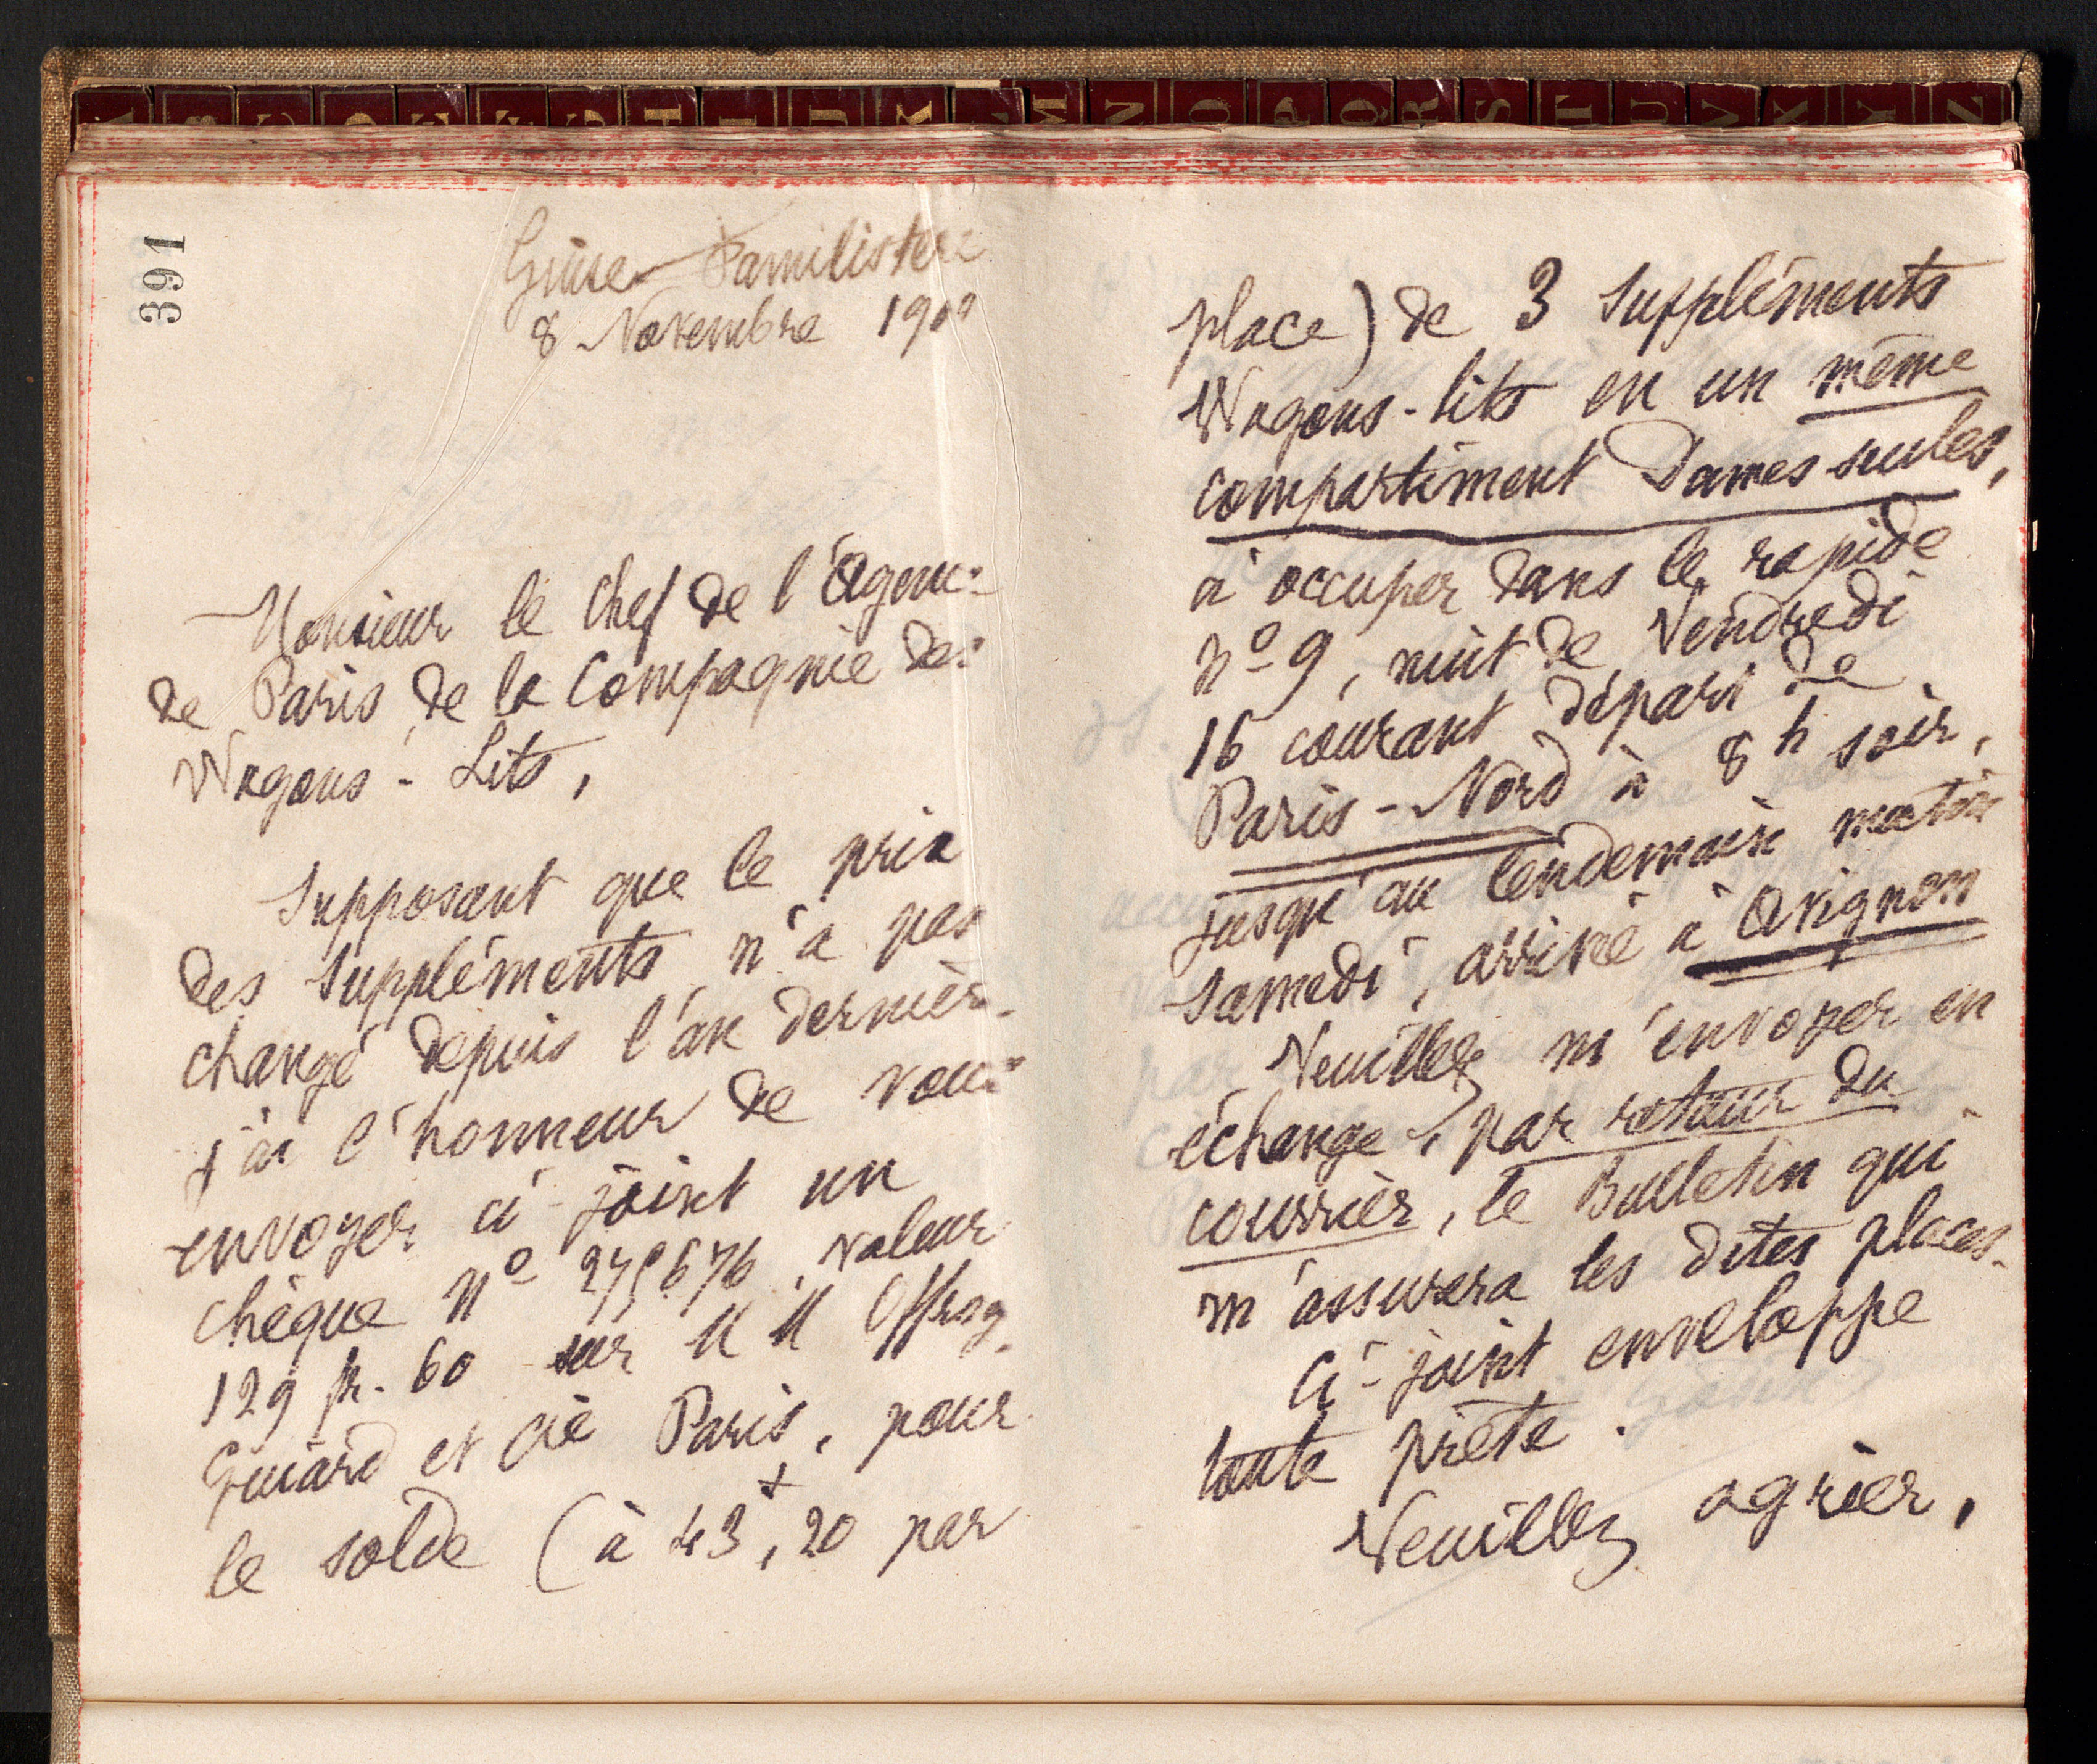 A B C D E F G H I J K L M N O P Q R S T U V X Y Z
391
Guise Familistère
8 Novembre 1900
Monsieur le Chef de l'Agence
de Paris de la Compagnie des
Wagons-Lits,
Supposant que le prix
des suppléments n'a pas
changé depuis l'an dernier
j'ai l'honneur de vous
envoyer ci-joint un
chèque Nº 275676, valeur
129 fr. 60 sur M M Offroy,
Guiard et Cie Paris, pour
le solde (à 43f,20 par
place) de 3 suppléments
Wagons-lits en un même
compartiment Dames seules,
à occuper dans le rapide
nº 9, nuit de Vendredi
16 courant départ de
Paris-Nord à 8h soir,
jusqu'au lendemain matin
samedi, arrivée à Avignon
Veuillez m'envoyer en
échange, par retour du
courrier, le Bulletin qui
m'assurera les dites places.
Ci-joint enveloppe
toute prête.
Veuillez agréer,